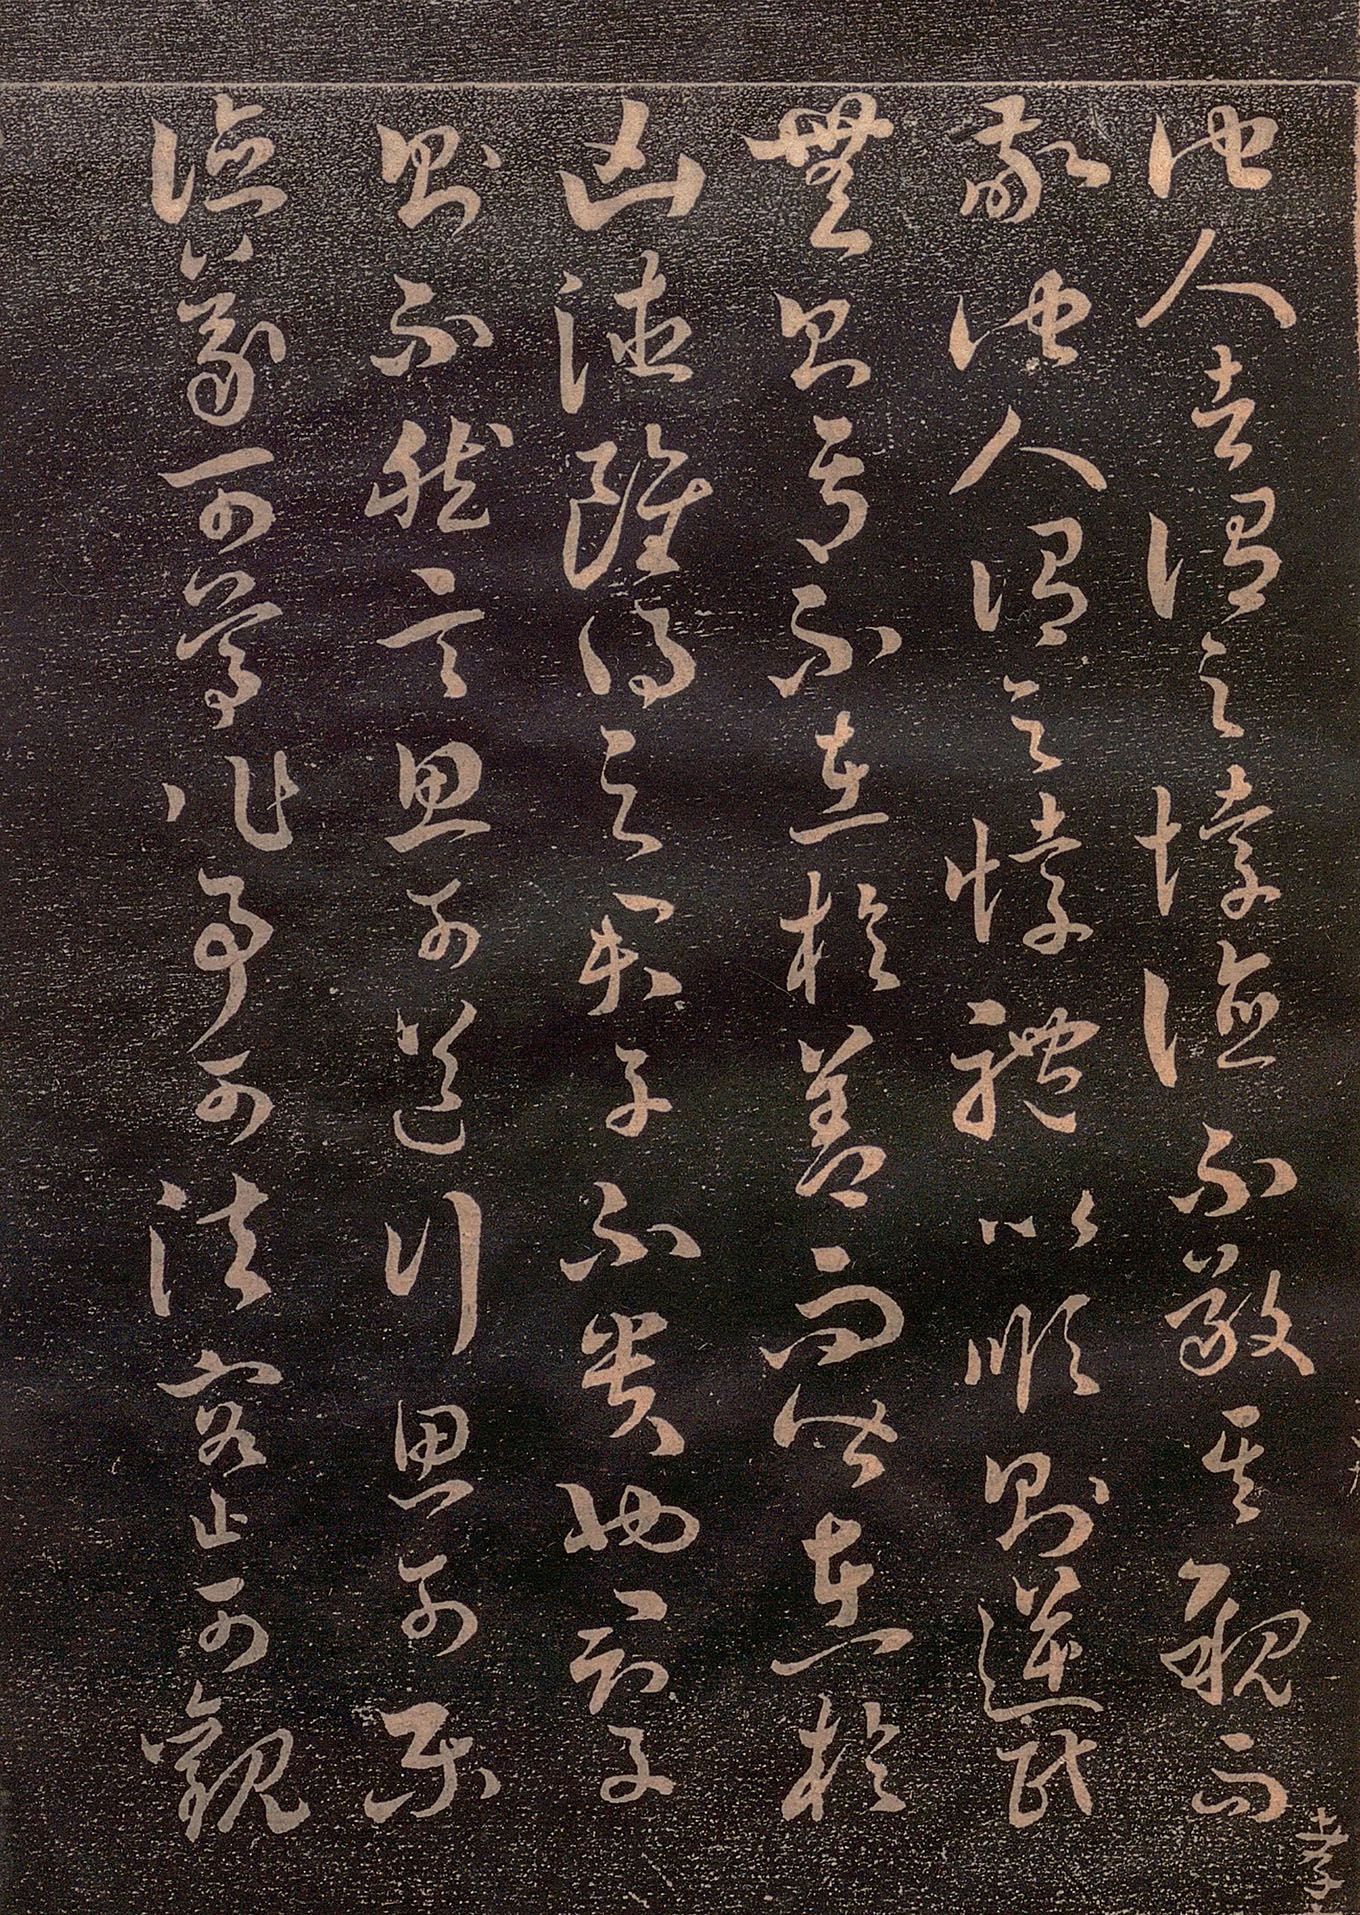 他人者謂之悖德不敬其親而
敬他人謂之悖禮以順則逆民
無則焉不在於善而皆在於
凶德雖得之君子不貴也君子
則不然言思可道行思可樂
德義可尊作事可法容止可觀